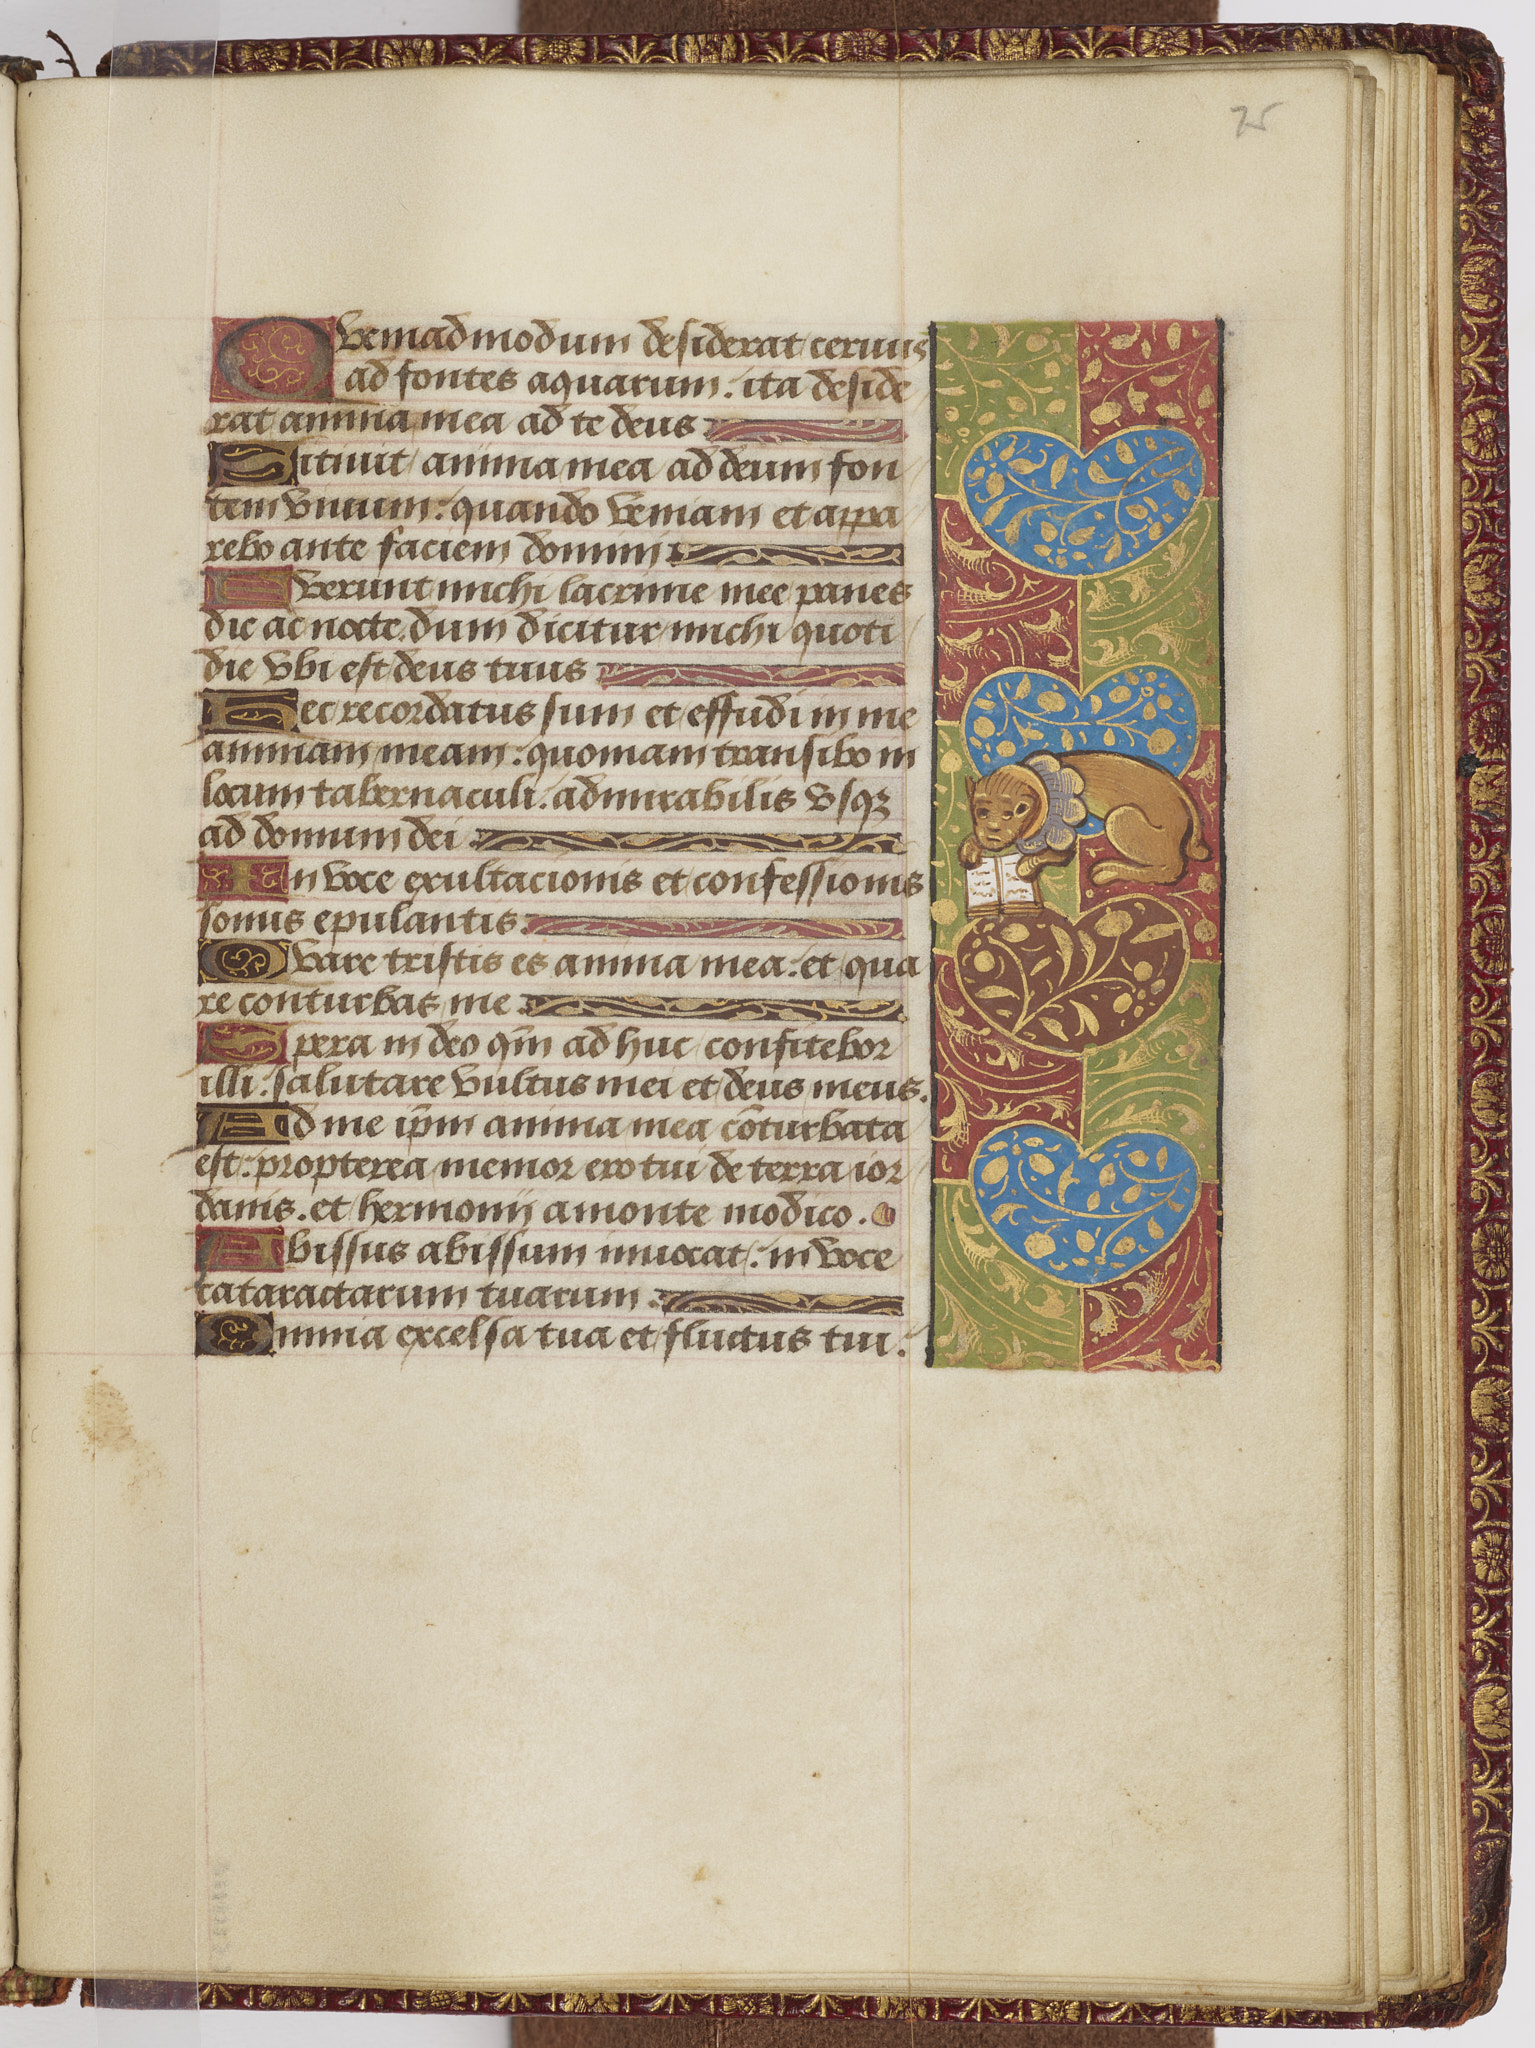 75
Quemadmodum desiderat ceruus
ad fontes aquarum. ita deside
rat anima mea ad te deus
Sitiuit anima mea ad deum fon
tem viuum: quando veniam et appa
rebo ante faciem domini
Fuerunt michi lacrime mee panes
die ac nocte. dum dicitur michi quoti
die vbi est deus tuus
Hec recordatus sum et effudi in me
animam meam: quoniam transibo in
locum tabernaculi. admirabilis vsqz
ad domum dei
In voce exultacionis et confessionis
sonus epulantis.
Quare tristis es anima mea: et qua
re conturbas me.
Spera in deo qm̄ ad huc confitebor
illi: salutare vultus mei et deus meus.
Ad me ip̄m anima mea cōturbata
est: propterea memor ero tui de terra ior
danis. et hermonij a monte modico.
Abissus abissum inuocat: in voce
cataractarum tuarum.
Omnia excelsa tua et fluctus tui: